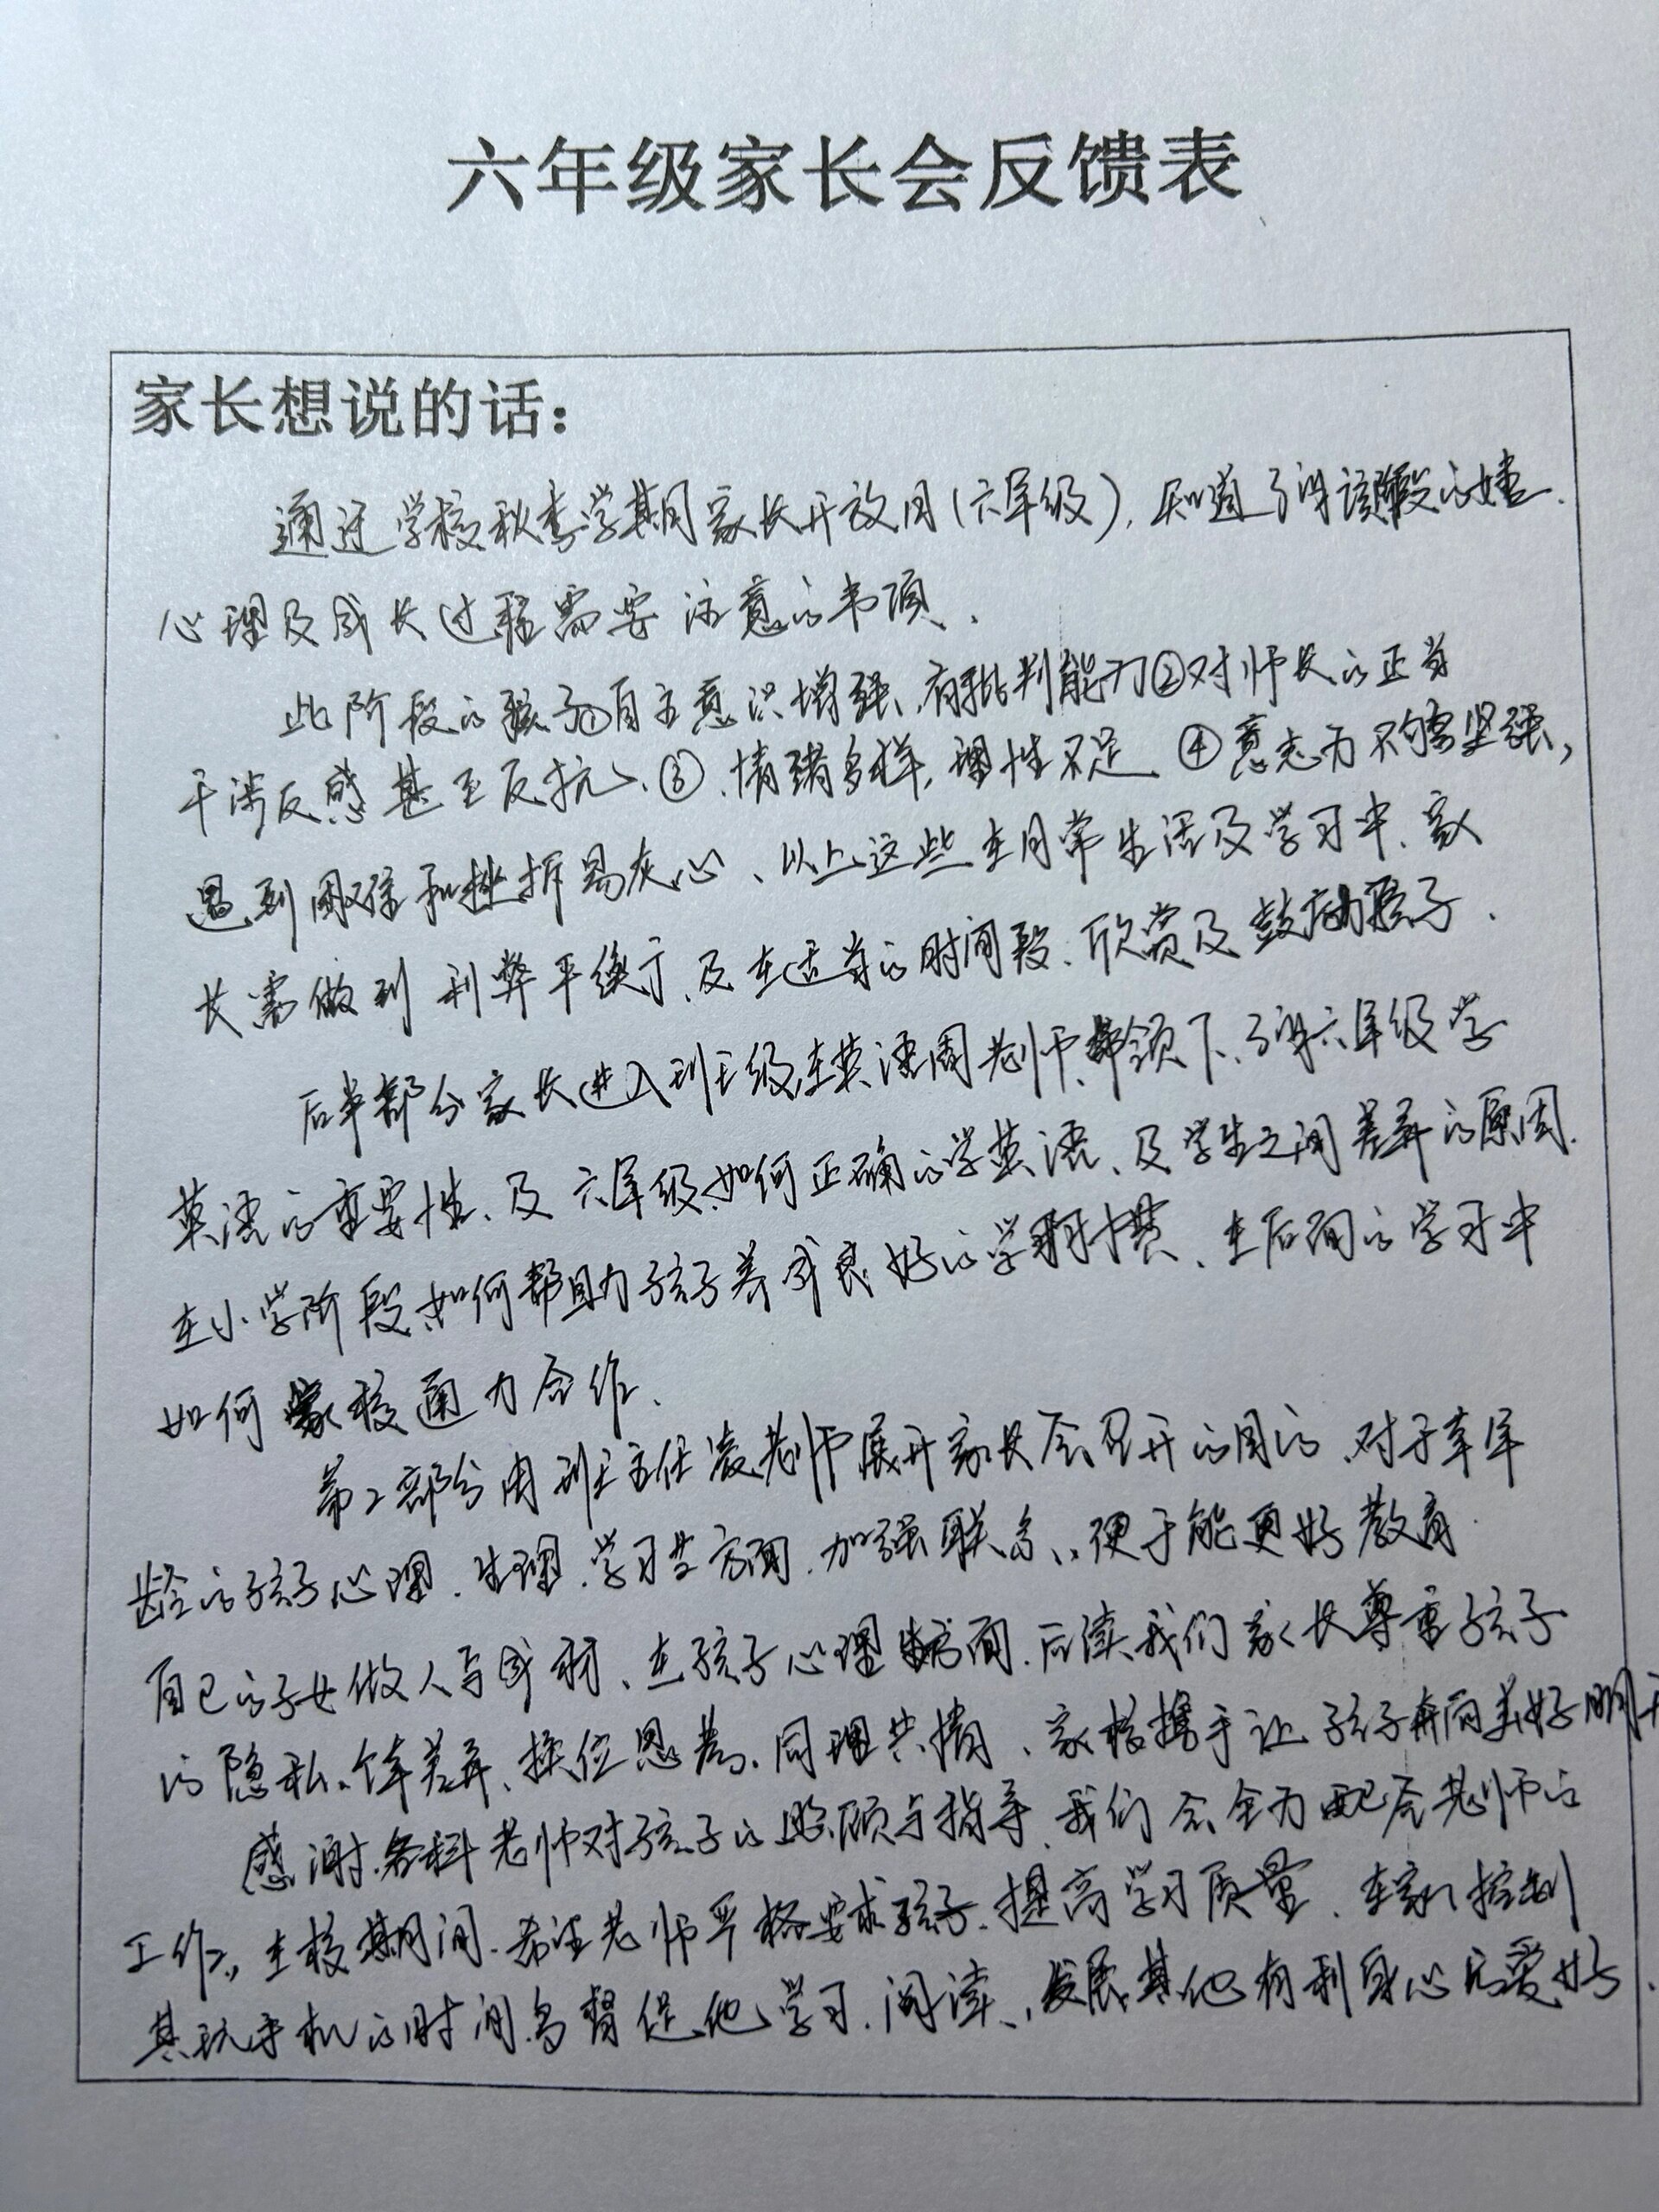 六年级家长会反馈表
家长想说的话：
通过学校秋季学期家长开放周(六年级),知道了该阶段的
心理及成长过程需要注意的事项、
此阶段的孩子①自主意识增强、有批判能力②对师长的正当
干涉反感甚至反抗、③、情绪多样,理性不足、④意志力不够坚强,
遇到困难和挫折易灰心、以上这些在日常生活及学习中、家
长需做到利弊平衡、及在适当的时间段、欣赏及鼓励孩子、
后半部分家长进入班级在英语周老师带领下、了解六年级学
英语的重要性、及六年级如何正确的学英语、及学生之间差异的原因.
在小学阶段如何帮助孩子养成良好的学习习惯、在后面的学习中
如何家校通力合作、
第2部分由班主任凌老师展开家长会召开的目的、对于本年
龄的孩子心理、生理、学习等方面、加强联系、便于能更好教育
自己的子女做人与成材、在孩子心理方面、后续我们家长尊重孩子
的隐私、个体差异、换位思考、同理共情、家校携手让孩子奔向美好明天
感谢各科老师对孩子的照顾与指导、我们会全力配合老师的
工作、在校期间、希望老师严格要求孩子、提高学习质量、在家控制
其玩手机的时间、多督促他学习、阅读、发展其他有利身心的爱好、